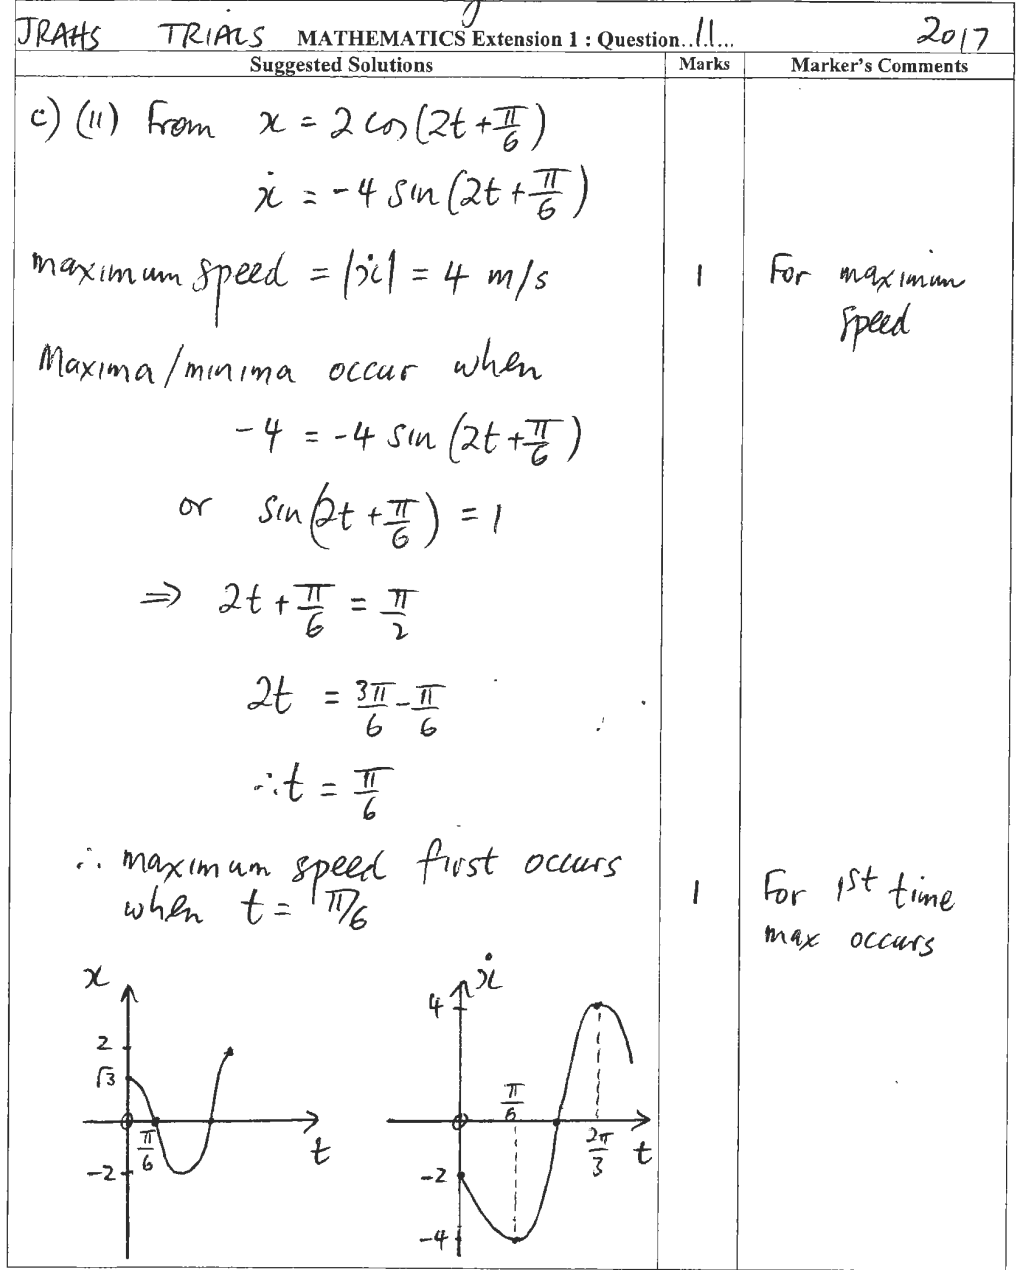 JRAHS TRIALS MATHEMATICS Extension 1 : Question..11... 2017
Suggested Solutions Marks Marker's Comments
c) (ii) From x = 2 cos(2t + π/6)
ẋ = -4 sin(2t + π/6)
maximum speed = |ẋ| = 4 m/s 1 For maximum
speed
Maxima/minima occur when
-4 = -4 sin(2t + π/6)
or sin(2t + π/6) = 1
⇒ 2t + π/6 = π/2
2t = 3π/6 - π/6
∴ t = π/6
∴ maximum speed first occurs
when t = π/6 1 For 1st time
max occurs
x
2
√3
0
π/6
-2
t
ẋ
4
0
π/6
2π/3
t
-2
-4